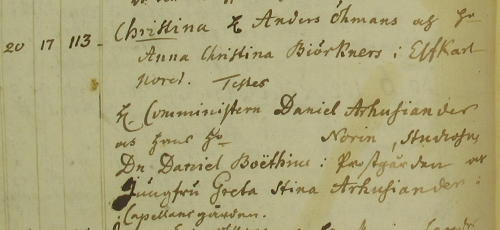 20 17 113 - Christina H Anders Öhmans och hu
Anna Christina Biörkners i Elfkarl
norel. Testes
H. Comministern Daniel Arhusiander
och hans hu Norin, Studiosus
Dn Daniel Boëthius i Prostgården och
Jungfru Greta Stina Arhusiander i
Capellansgården.